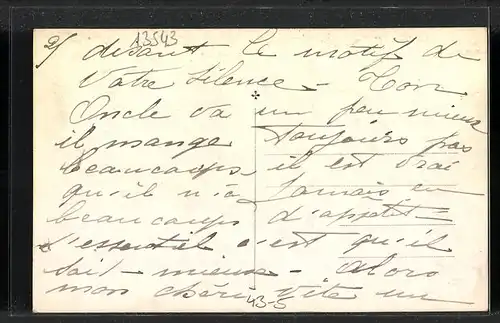 2/ disant le motif de 13543
votre silence - Ton
Oncle va un peu mieux
il mange toujours pas
beaucoups il est vrai
qu'il n'a jamais eu
beaucoups d'appétit -
l'essentiel c'est qu'il
soit mieux - Alors
mon chéri vite un
43-5